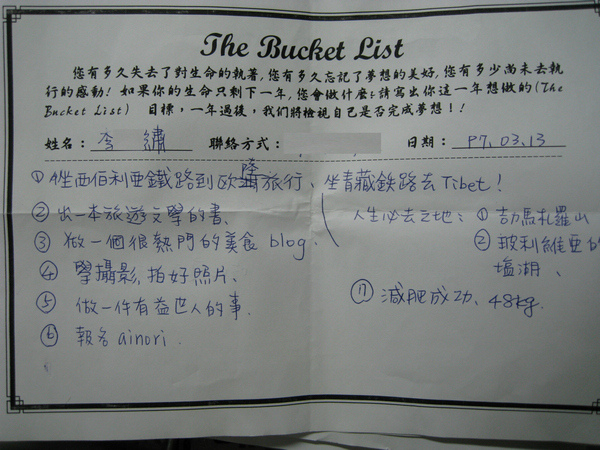 The Bucket List
您有多久失去了對生命的執著,您有多久忘記了夢想的美好,您有多少尚未去執
行的感動! 如果你的生命只剩下一年,您會做什麼?請寫出你這一年想做的(The
Bucket List) 目標，一年過後，我們將檢視自己是否完成夢想!!
姓名： 李 繡 聯絡方式： 日期： 97.03.13
① 坐西伯利亞鐵路到歐陸旅行、坐青藏鉄路去Tibet!
② 出一本旅遊文學的書、
③ 做一個很熱門的美食 blog、
④ 學攝影,拍好照片、
⑤ 做一件有益世人的事.
⑥ 報名 ainori.
人生必去之地： ① 吉力馬札羅山
② 玻利維亞的
塩湖、
⑦ 減肥成功、48kg.